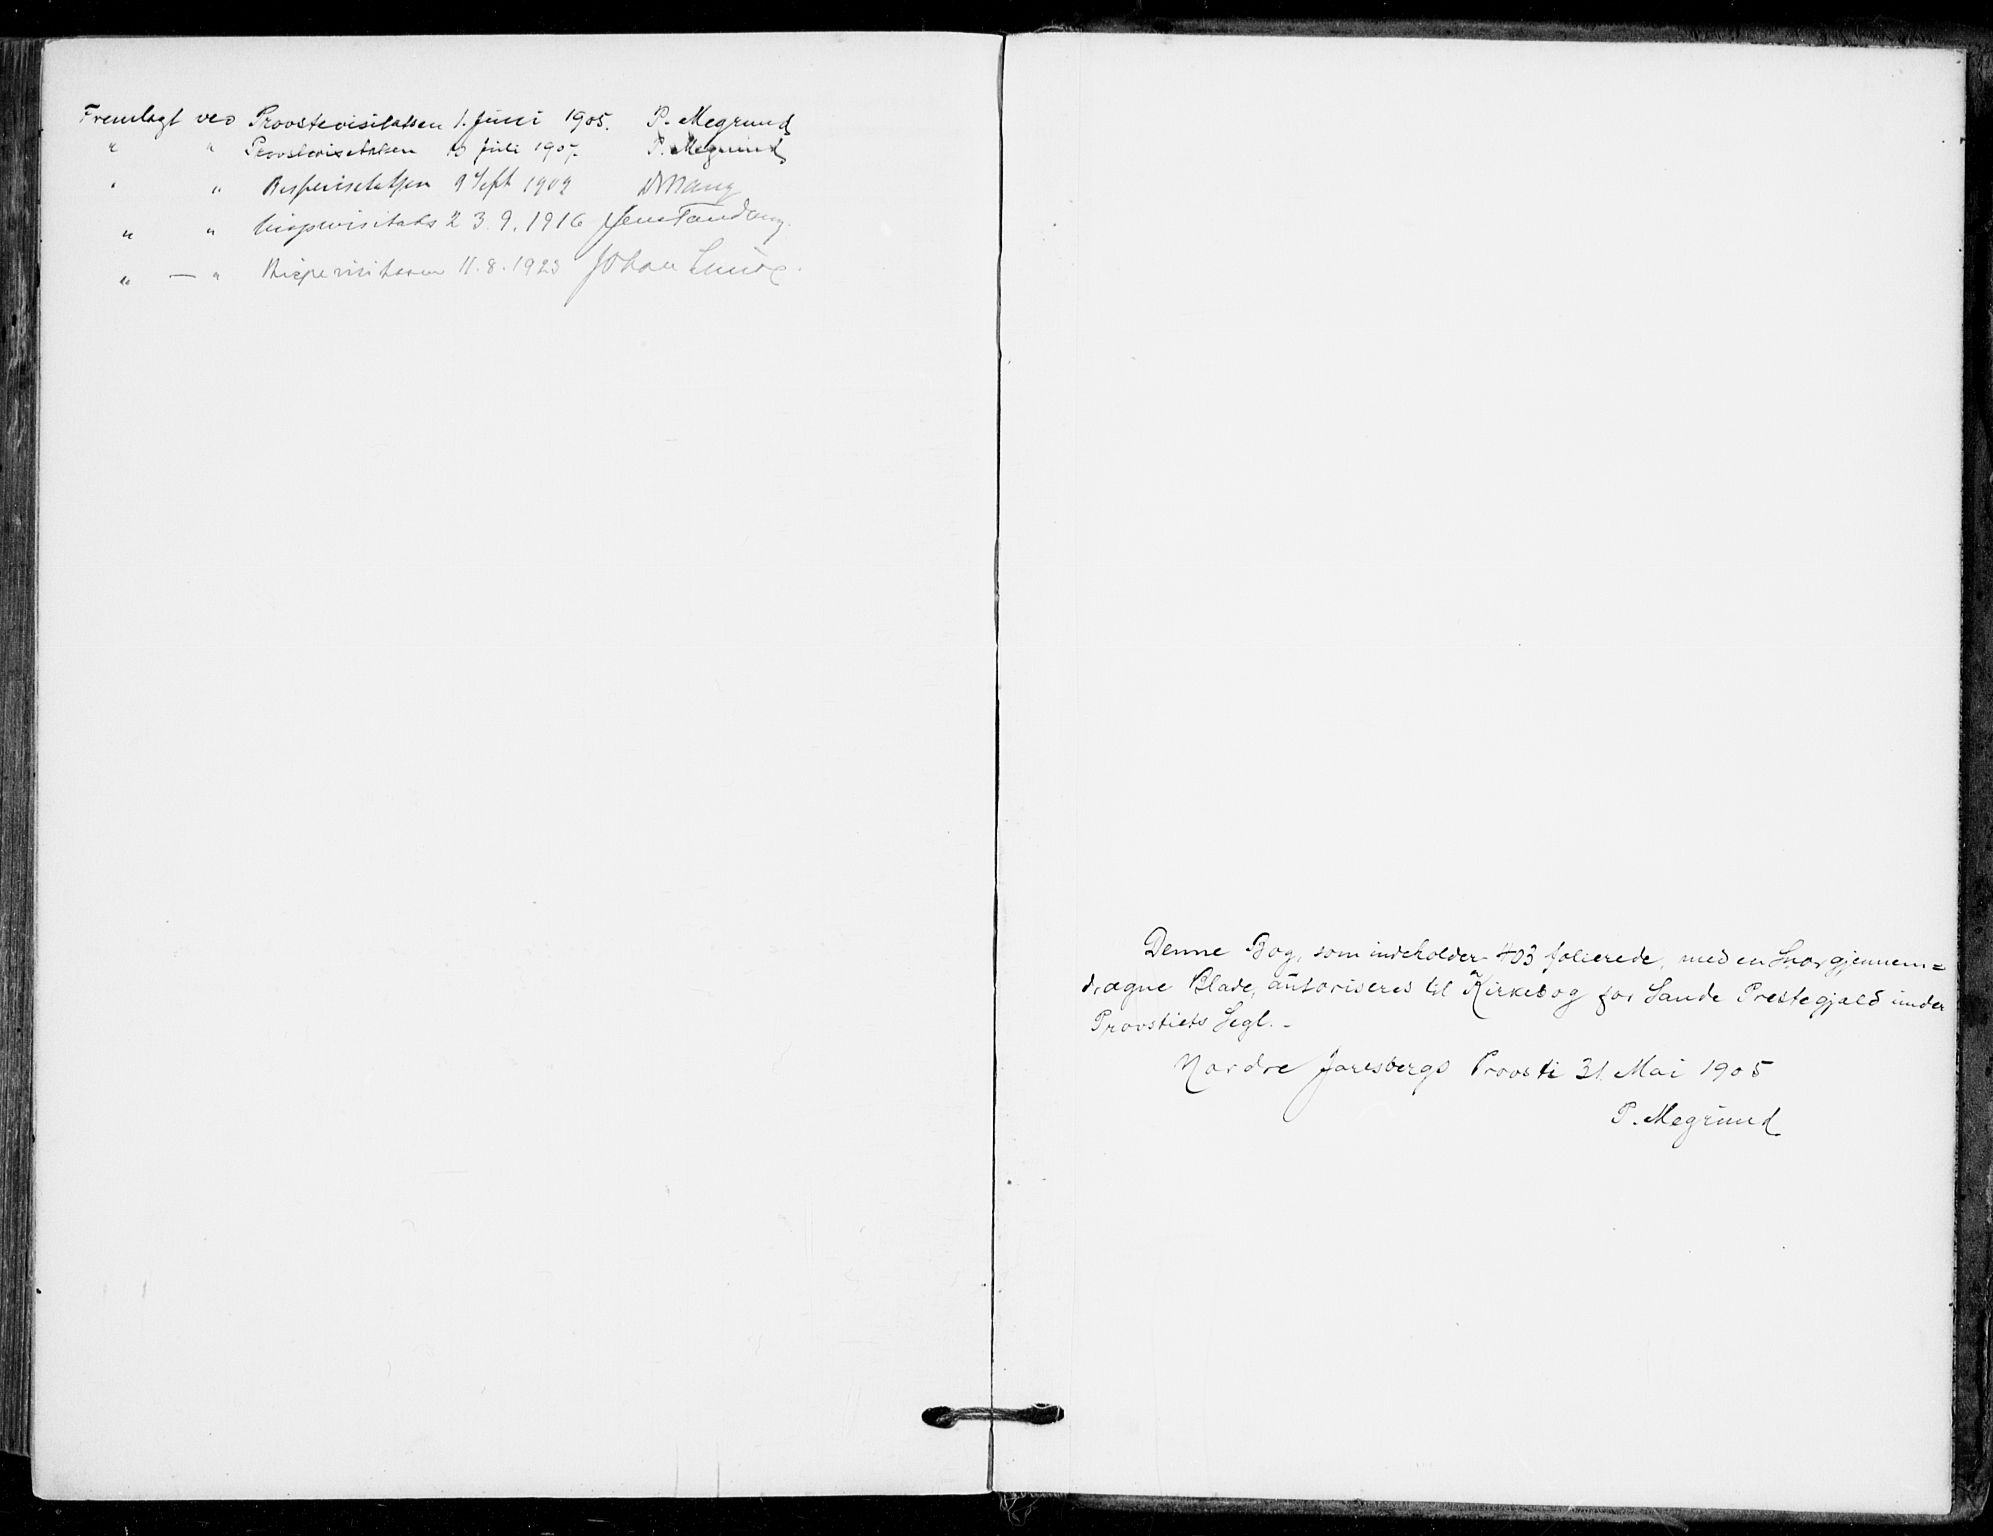 Fremlagt ved Provstevisitatsen 1. Juni 1905. P. Megrund
" " Provstevisitatsen 10 Juli 1907. P. Megrund
" " Bispevisitatsen 9 Sept 1909
" " bispevisitats 2 3.9.1916 Jens Tandberg.
" — " Bispevisitasen 11.8.1923 Johan Lunde.
Denne Bog, som indeholder 403 folierede, med en Snor gjennem=
dragne Blade, autoriseres til Kirkebog for Sande Prestegjeld under
Provstiets Segl. -
Nordre Jarlsbergs Provsti 31 Mai 1905
P. Megrund